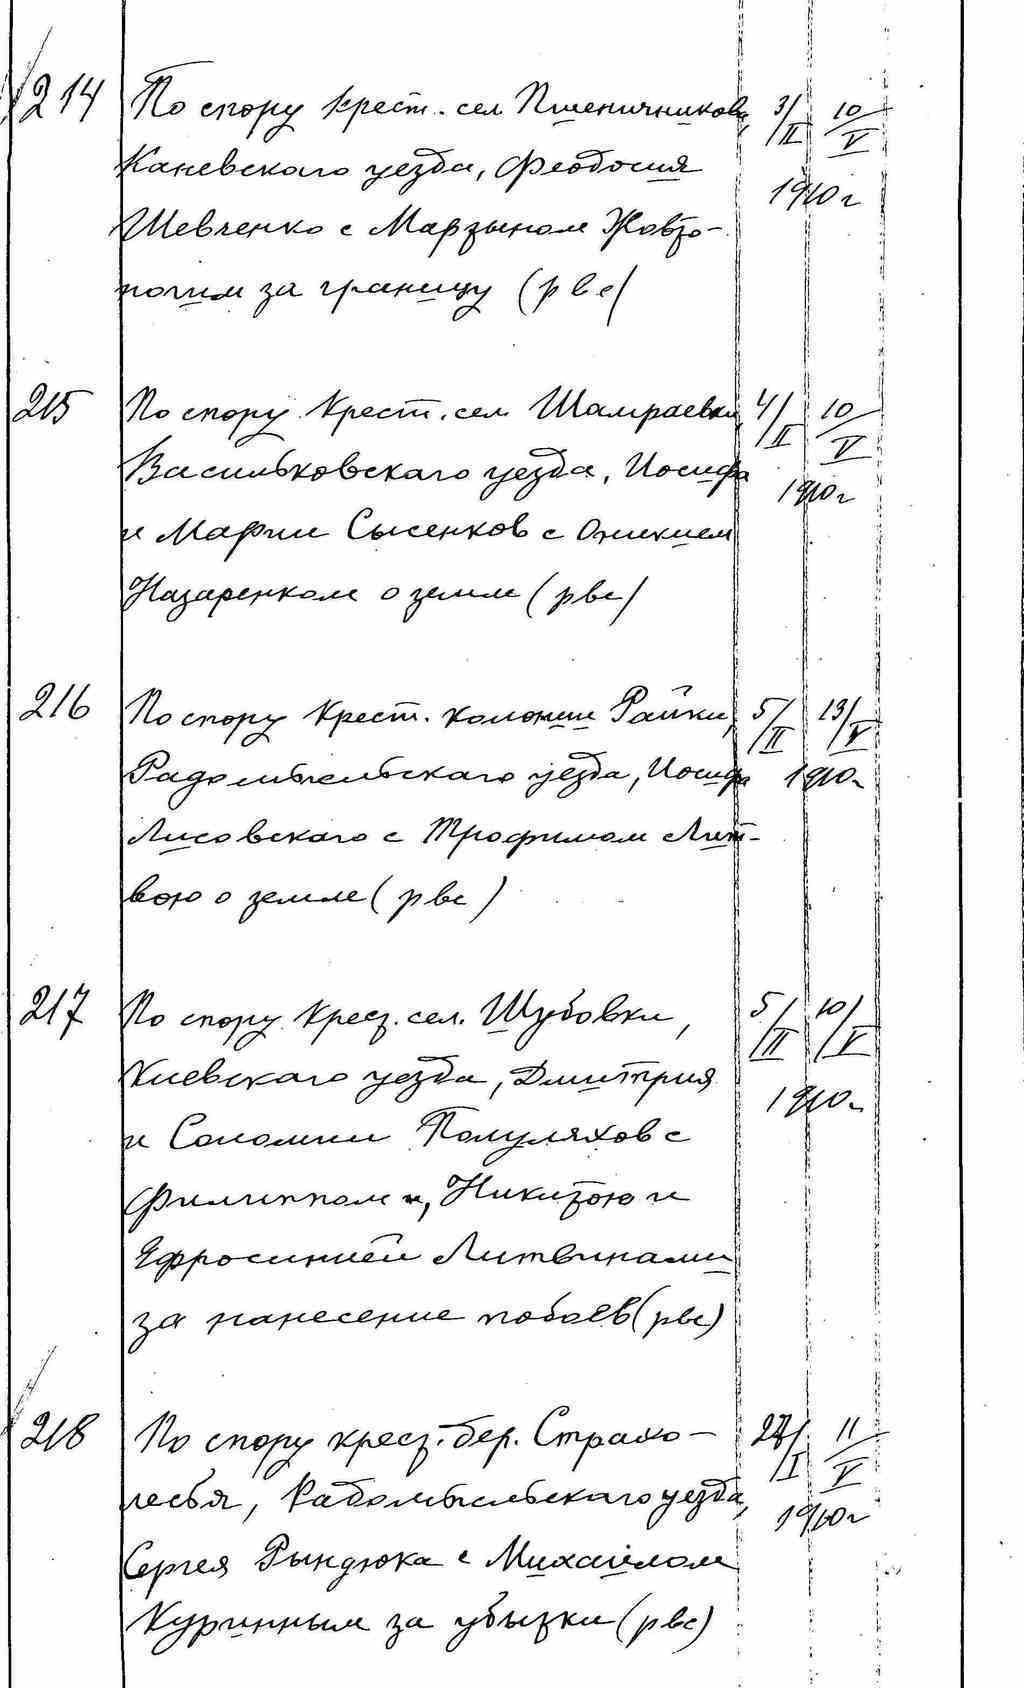 214 По спору крест. сел Пшеничникова, 3/II 10/V
Каневского уезда, Феодосия 1910 г
Шевченко с Марзыном Жовто-
ногим за границу (рвс)
215 По спору крест. сел Шамраевки, 4/II 10/V
Васильковского уезда, Иосифа 1910 г
и Марии Сысенков с Оникием
Назаренком о земле (рвс)
216 По спору крест. колонии Райки, 5/II 13/V
Радомысльского уезда, Иосифа 1910 г
Лисовского с Трофимом Лит-
вою о земле (рвс)
217 По спору крест. сел. Шубовки, 5/II 10/V
Киевского уезда, Дмитрия 1910 г
и Соломии Полуляхов с
Филиппом, Никитою и
Ефросинией Литвинами
за нанесение побоев (рвс)
218 По спору крест. дер. Страхо- 27/I 11/V
лесья, Радомысльского уезда, 1910 г
Сергея Рындюка с Михаилом
Куринным за убытки (рвс)